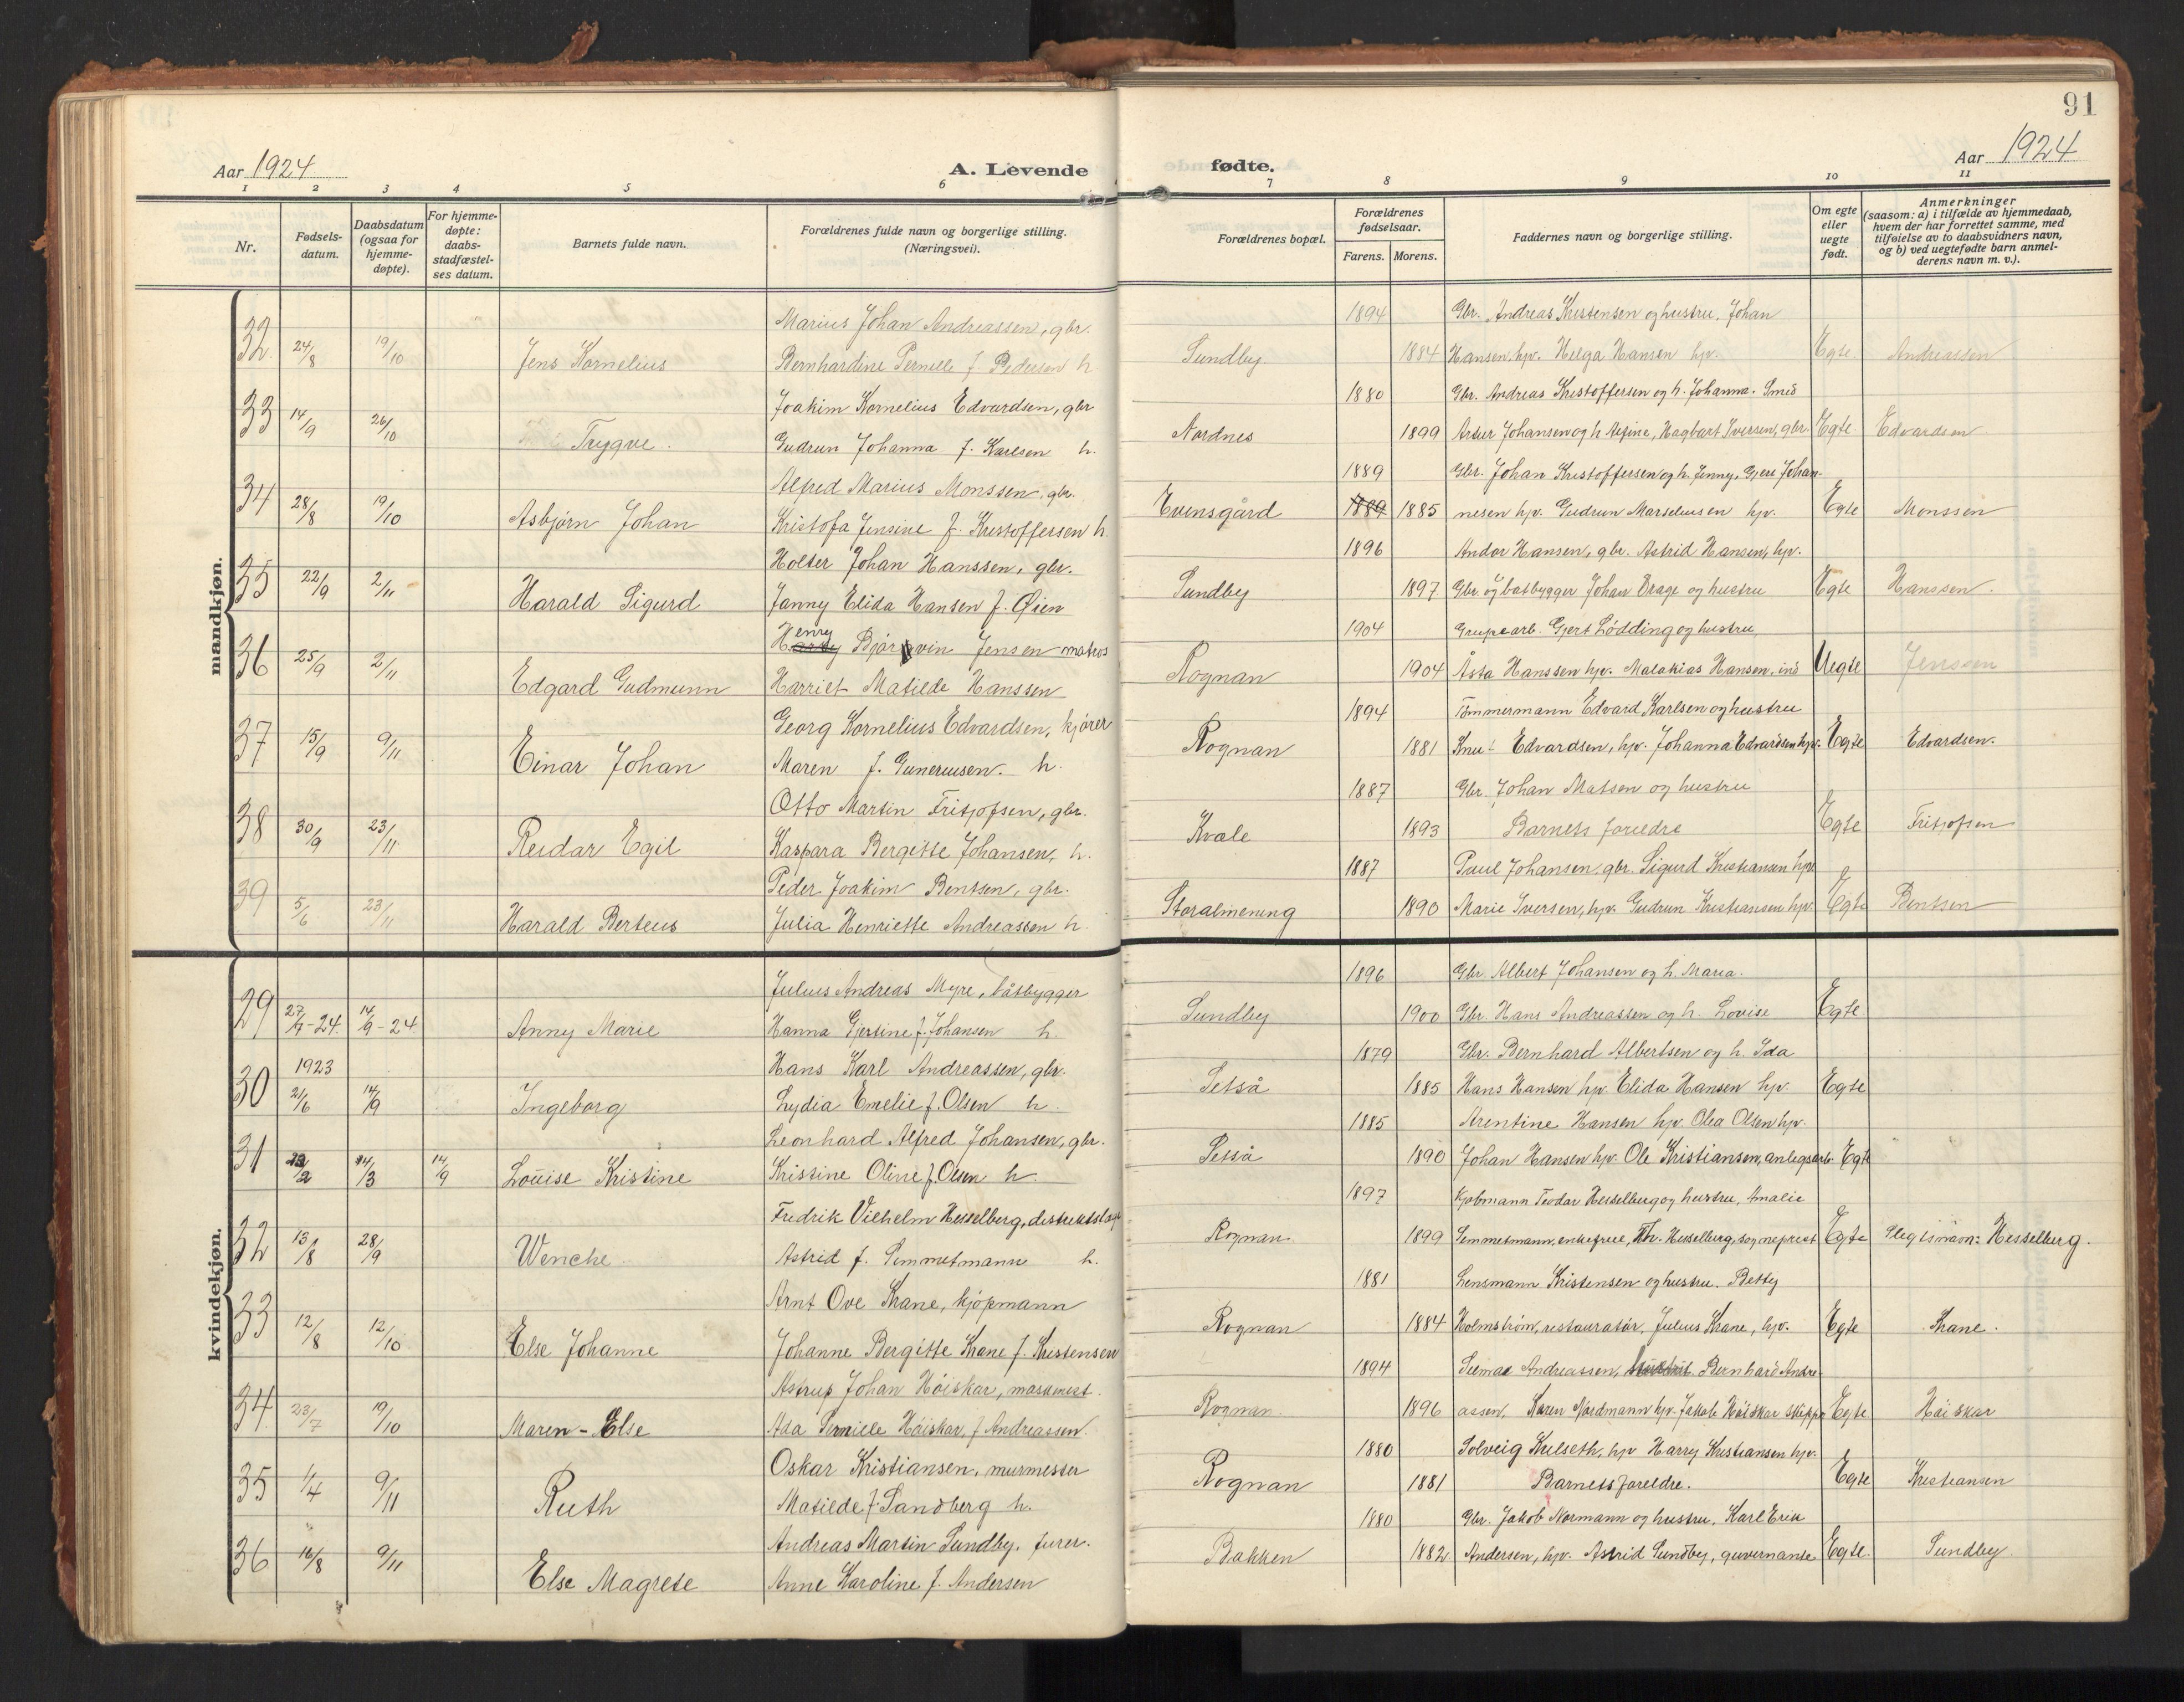 91
Aar 1924
A. Levende
fødte.
Aar 1924
1 2 3 4 5 6 7 8 9 10 11
Nr.
Fødsels-
datum.
Daabsdatum
(ogsaa for
hjemme-
døpte).
For hjemme-
døpte:
daabs-
stadfæstel-
ses datum.
Barnets fulde navn.
Forældrenes fulde navn og borgerlige stilling.
(Næringsvei).
Forældrenes bopæl.
Forældrenes
fødselsaar.
Farens. Morens.
Faddernes navn og borgerlige stilling.
Om egte
eller
uegte
født.
Anmerkninger
(saasom: a) i tilfælde av hjemmedaab,
hvem der har forrettet samme, med
tilføielse av to daabsvidners navn,
og b) ved uegtefødte barn anmel-
derens navn m. v.).
mandkjøn.
Marius Johan Andreassen, gbr. 1894 Gbr. Andreas Kristensen og hustru, Johan
32. 24/8 19/10 Jens Kornelius Bernhardine Pernille f. Pedersen h. Sundby 1884 Hansen hp. Helga Hansen hp. Egte Andreassen
Joakim Kornelius Edvardsen, gbr 1880 Gbr. Andreas Kristoffersen og h. Johanna. Smed
33 14/9 26/10 Trygve. Gudrun Johanna f. Karlsen h. Nordnes 1899 Johansen og h. Hagbart Iversen, gbr. Egte Edvardsen
Alfred Marius Monssen, gbr. 1889 Gbr. Johan Kristoffersen og h. Jenny, Gjert Johan-
34 28/8 19/10 Asbjørn Johan Kristofa Jensine f. Kristoffersen h. Evensgård 1889 1885 nesen hp. Gudrun Marseliusen hp. Egte Monssen
Holter Johan Hanssen, gbr. 1896 Andor Hansen, gbr. Astrid Hansen, hp.
35 22/9 2/11 Harald Sigurd Janny Elida Hansen f. Øien Sundby 1897 Gbr. og båtbygger Johan Drage og hustru Egte Hanssen.
Henry Bjørgvin Jensen matros 1904 Grupearb. Gjert Lødding og hustru,
36 25/9 2/11 Edgard Gudmunn Harriet Matilde Hanssen Rognan 1904 Åsta Hanssen hp. Malakias Hansen, ind Uegte Jenssen
Georg Kornelius Edvardsen, kjører 1894 Tømmermann Edvard Karlsen og hustru
37 15/9 9/11 Einar Johan Maren f. Gunerusen. h. Rognan 1881 Knut Edvardsen, hp. Johanna Edvardsen hp. Egte Edvardsen.
Otto Martin Fritjofsen, gbr. 1887 Gbr. Johan Matsen og hustru
38 30/9 23/11 Reidar Egil Kaspara Bergitte Johansen, h. Kvæle 1893 Barnets foreldre Egte Fritjofsen
Peder Joakim Bentsen, gbr. 1887 Paul Johansen, gbr. Sigurd Kristiansen hp.
39 5/6 23/11 Harald Berteus Julia Henriette Andreassen h. Storalmening 1890 Marie Iversen, hp. Gudrun Kristiansen hp. Egte Bentsen
kvindekjøn.
Julius Andreas Myre, båtbygger 1896 Gbr. Albert Johansen og h. Maria.
29 27/7-24. 14/9-24 Anny Marie Hanna Gjertine f. Johansen h. Sundby 1900 Gbr. Hans Andreassen og h. Lovise Egte
1923 Hans Karl Andreassen, gbr. 1879 Gbr. Bernhard Albertsen og h. Ida
30 21/6 14/9 Ingeborg Lydia Emelie f. Olsen h. Setså 1885 Hans Hansen hp. Elida Hansen hp. Egte
Leonhard Alfred Johansen, gbr. 1885 Arentine Hansen hp. Olea Olsen hp.
31 14/3 14/9 Louise Kristine Kristine Oline f. Olsen h. Setså 1890 Johan Hansen hp. Ole Kristiansen, anlegsarb. Egte
Fredrik Vilhelm Hesselberg, distriktslæge 1897 Kjøbmann Teodor Hesselberg og hustru, Amalie
32 13/8 28/9 Wenche Astrid f. Temmetmann h. Rognan 1899 Temmetmann, enkefrue, Th. Hesselberg, sogneprest Egte Slegtsnavn: Hesselberg.
Arnt Ove Krane, kjøpmann 1881 Lensmann Kristensen og hustru. Betty
33 12/8 12/10 Else Johanne Johanne Bergitte Krane f. Kristensen Rognan 1884 Holmstrøm, restauratør, Julius Krane, hp. Egte Krane.
Astrup Johan Høiskar, maskinist. 1894 Selmar Andreassen, Bernhard Andre-
34. 23/7 19/10 Maren-Else Ada Pernille Høiskar, f Andreassen. Rognan. 1896 assen, Karen Nordmann hp. Jakob Høiskar skipper Egte Høiskar
Oskar Kristiansen, murmester 1880 Solveig Kulseth, hp Harry Kristiansen hp.
35 1/4 9/11 Ruth Matilde f. Sandberg h. Rognan 1881 Barnets foreldre. Egte Kristiansen
Andreas Martin Sundby, furer. 1880 Gbr. Jakob Normann og hustru, Karl Erik
36 16/8 9/11 Else Magrete Anne Karoline f. Andersen Bakken 1882 Andersen, hp. Astrid Sundby, guvernante Egte. Sundby.